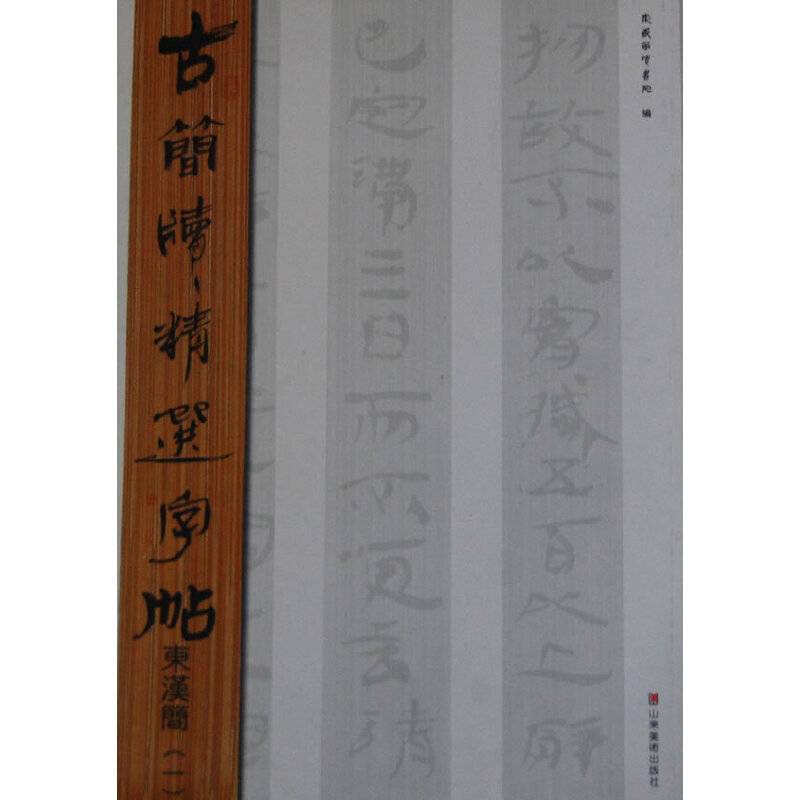 古簡牘精選字帖
東漢簡(一)
物故不以實臧五百以上辭
已定滿三日而不更言請
編
山東美術出版社